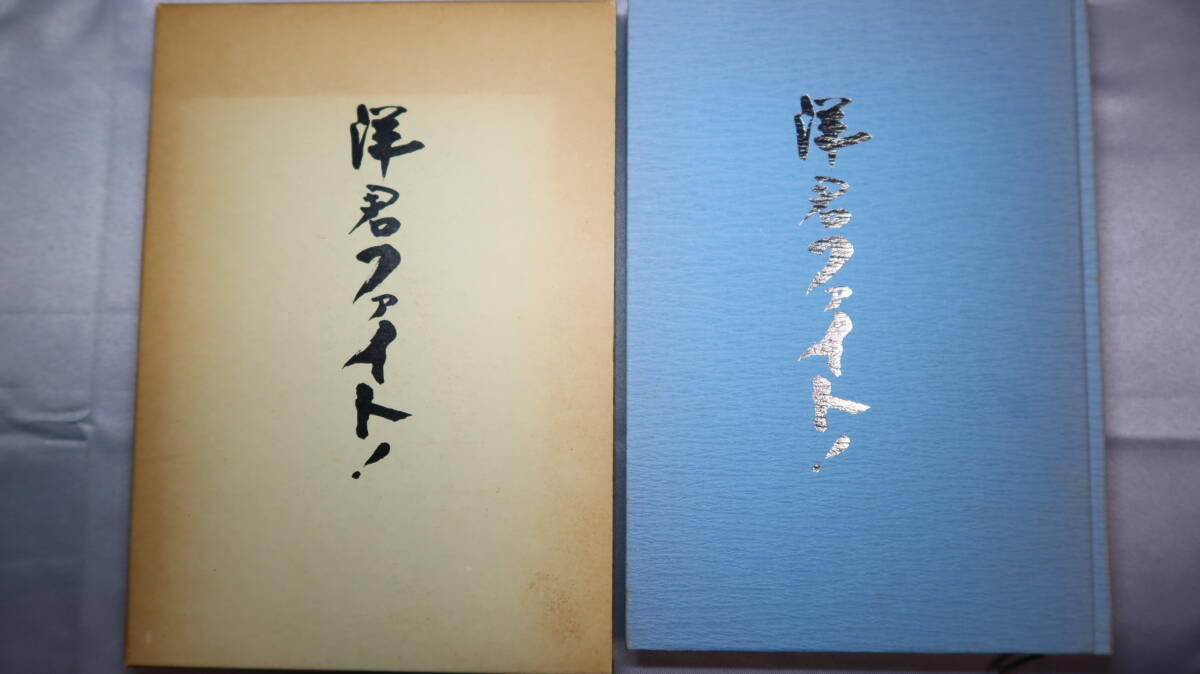 洋君ファイト!
洋君ファイト!